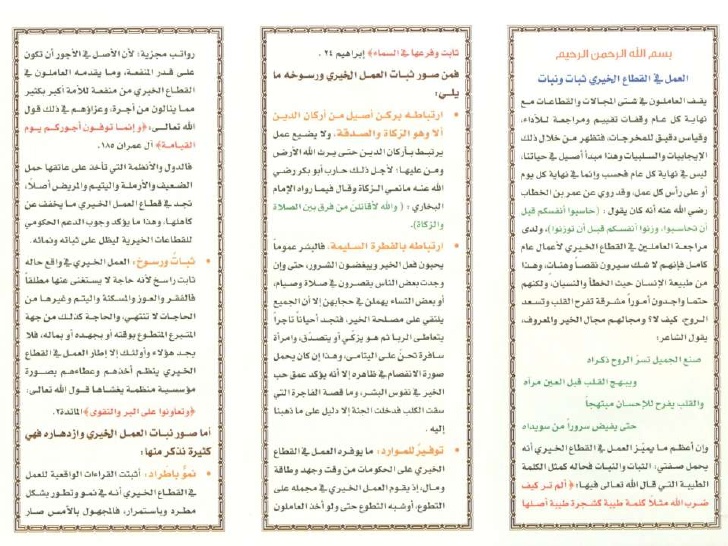 بسم الله الرحمن الرحيم
العمل في القطاع الخيري ثبات ونبات
يقف العاملون في شتى المجالات والقطاعات مع
نهاية كل عام وقفات تقييم ومراجعة للأداء،
وقياس دقيق للمخرجات، فتظهر من خلال ذلك
الإيجابيات والسلبيات وهذا مبدأ أصيل في حياتنا،
ليس في نهاية كل عام فحسب وإنما في نهاية كل يوم
أو على رأس كل عمل، وقد روي عن عمر بن الخطاب
رضي الله عنه أنه كان يقول: (حاسبوا أنفسكم قبل
أن تحاسبوا، وزنوا أنفسكم قبل أن توزنوا)، ولدى
مراجعة العاملين في القطاع الخيري لأعمال عام
كامل فإنهم لا شك سيرون نقصاً وهنات، وهذا
من طبيعة الإنسان حيث الخطأ والنسيان، ولكنهم
حتما واجدون أموراً مشرقة تفرح القلب وتسعد
الروح، كيف لا؟ ومجالهم مجال الخير والمعروف،
يقول الشاعر:
صنع الجميل تسرّ الروح ذكراه
ويبهج القلب قبل العين مرآه
والقلب يفرح للإحسان مبتهجاً
حتى يفيض سروراً من سويداه
وإن أعظم ما يميّز العمل في القطاع الخيري أنه
يحمل صفتي: الثبات والنبات فحاله كمثل الكلمة
الطيبة التي قال الله تعالى فيها: ﴿ألم تر كيف
ضرب الله مثلاً كلمة طيبة كشجرة طيبة أصلها
ثابت وفرعها في السماء﴾ إبراهيم ٢٤ .
فمن صور ثبات العمل الخيري ورسوخه ما
يلي:
• ارتباطه بركن أصيل من أركان الدين
ألا وهو الزكاة والصدقة، ولا يضيع عمل
يرتبط بأركان الدين حتى يرث الله الأرض
ومن عليها؛ لأجل ذلك حارب أبو بكر رضي
الله عنه مانعي الزكاة وقال فيما رواه الإمام
البخاري : ( والله لأقاتلنّ من فرق بين الصلاة
والزكاة).
• ارتباطه بالفطرة السليمة، فالبشر عموماً
يحبون فعل الخير ويبغضون الشرور، حتى وإن
وجدت بعض الناس يقصرون في صلاة وصيام،
أو بعض النساء يهملن في حجابهن إلا أن الجميع
يلتقي على مصلحة الخير، فتجد أحياناً تاجراً
يتعاطى الربا ثم هو يزكّي أو يتصدّق، وامرأة
سافرة تحنّ على اليتامى، وهذا إن كان يحمل
صورة الانفصام في ظاهره إلا أنه يؤكد عمق حب
الخير في نفوس البشر، وما قصة الفاجرة التي
سقت الكلب فدخلت الجنة إلا دليل على ما ذهبنا
إليه .
• توفير للموارد: ما يوفره العمل في القطاع
الخيري على الحكومات من وقت وجهد وطاقة
ومال، إذ يقوم العمل الخيري في مجمله على
التطوع، أو شبه التطوع حتى ولو أخذ العاملون
رواتب مجزية؛ لأن الأصل في الأجور أن تكون
على قدر المنفعة، وما يقدمه العاملون في
القطاع الخيري من منفعة للأمة أكبر بكثير
مما ينالون من أجرة، وعزاؤهم في ذلك قول
الله تعالى: ﴿وإنما توفون أجوركم يوم
القيامة﴾ آل عمران ١٨٥.
فالدول والأنظمة التي تأخذ على عاتقها حمل
الضعيف والأرملة واليتيم والمريض أصلاً،
تجد في قطاع العمل الخيري ما يخفف عن
كاهلها، وهذا ما يؤكد وجوب الدعم الحكومي
للقطاعات الخيرية ليظل على ثباته ونمائه.
• ثبات ورسوخ: العمل الخيري في واقع حاله
ثابت راسخ لأنه حاجة لا يستغنى عنها مطلقاً
فالفقر والعوز والمسكنة واليتم وغيرها من
الحاجات لا تنتهي، والحاجة كذلك من جهة
المتبرع المتطوع بوقته أو بجهده أو بماله، فلا
يجد هؤلاء وأولئك إلا إطار العمل في القطاع
الخيري ينظم أخذهم وعطاءهم بصورة
مؤسسية منظمة يغشاها قول الله تعالى:
﴿وتعاونوا على البر والتقوى﴾ المائدة٢.
أما صور نبات العمل الخيري وازدهاره فهي
كثيرة نذكر منها:
• نموّ باطراد: أثبتت القراءات الواقعية للعمل
في القطاع الخيري أنه في نمو وتطور بشكل
مطرد وباستمرار، فالمجهول بالأمس صار